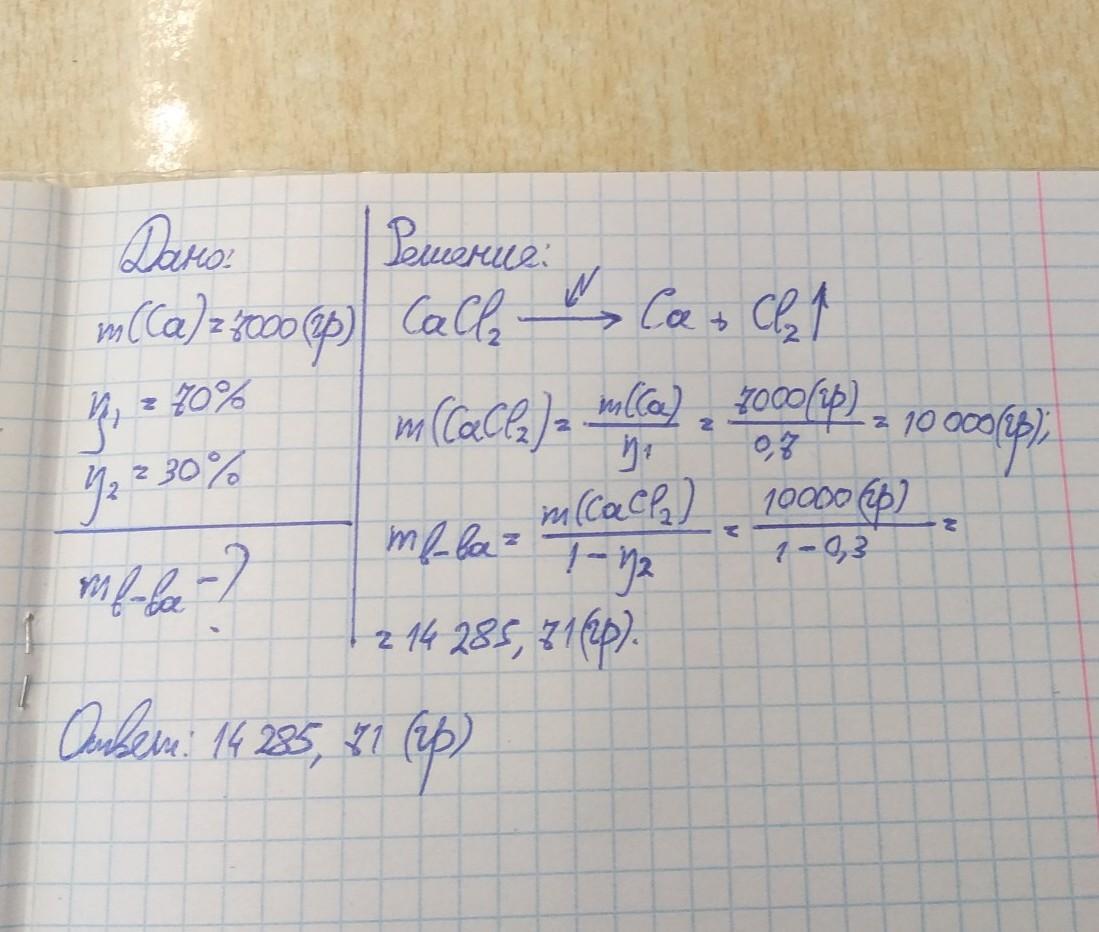 Дано:
m(Ca) = 7000 (гр)
η₁ = 70%
η₂ = 30%
m в-ва - ?
Решение:
CaCl₂ → Ca + Cl₂↑
m(CaCl₂) = m(Ca) / η₁ = 7000(гр) / 0,7 = 10 000(гр);
m в-ва = m(CaCl₂) / 1 - η₂ = 10000(гр) / 1 - 0,3 =
= 14 285, 71 (гр).
Ответ: 14 285, 71 (гр)